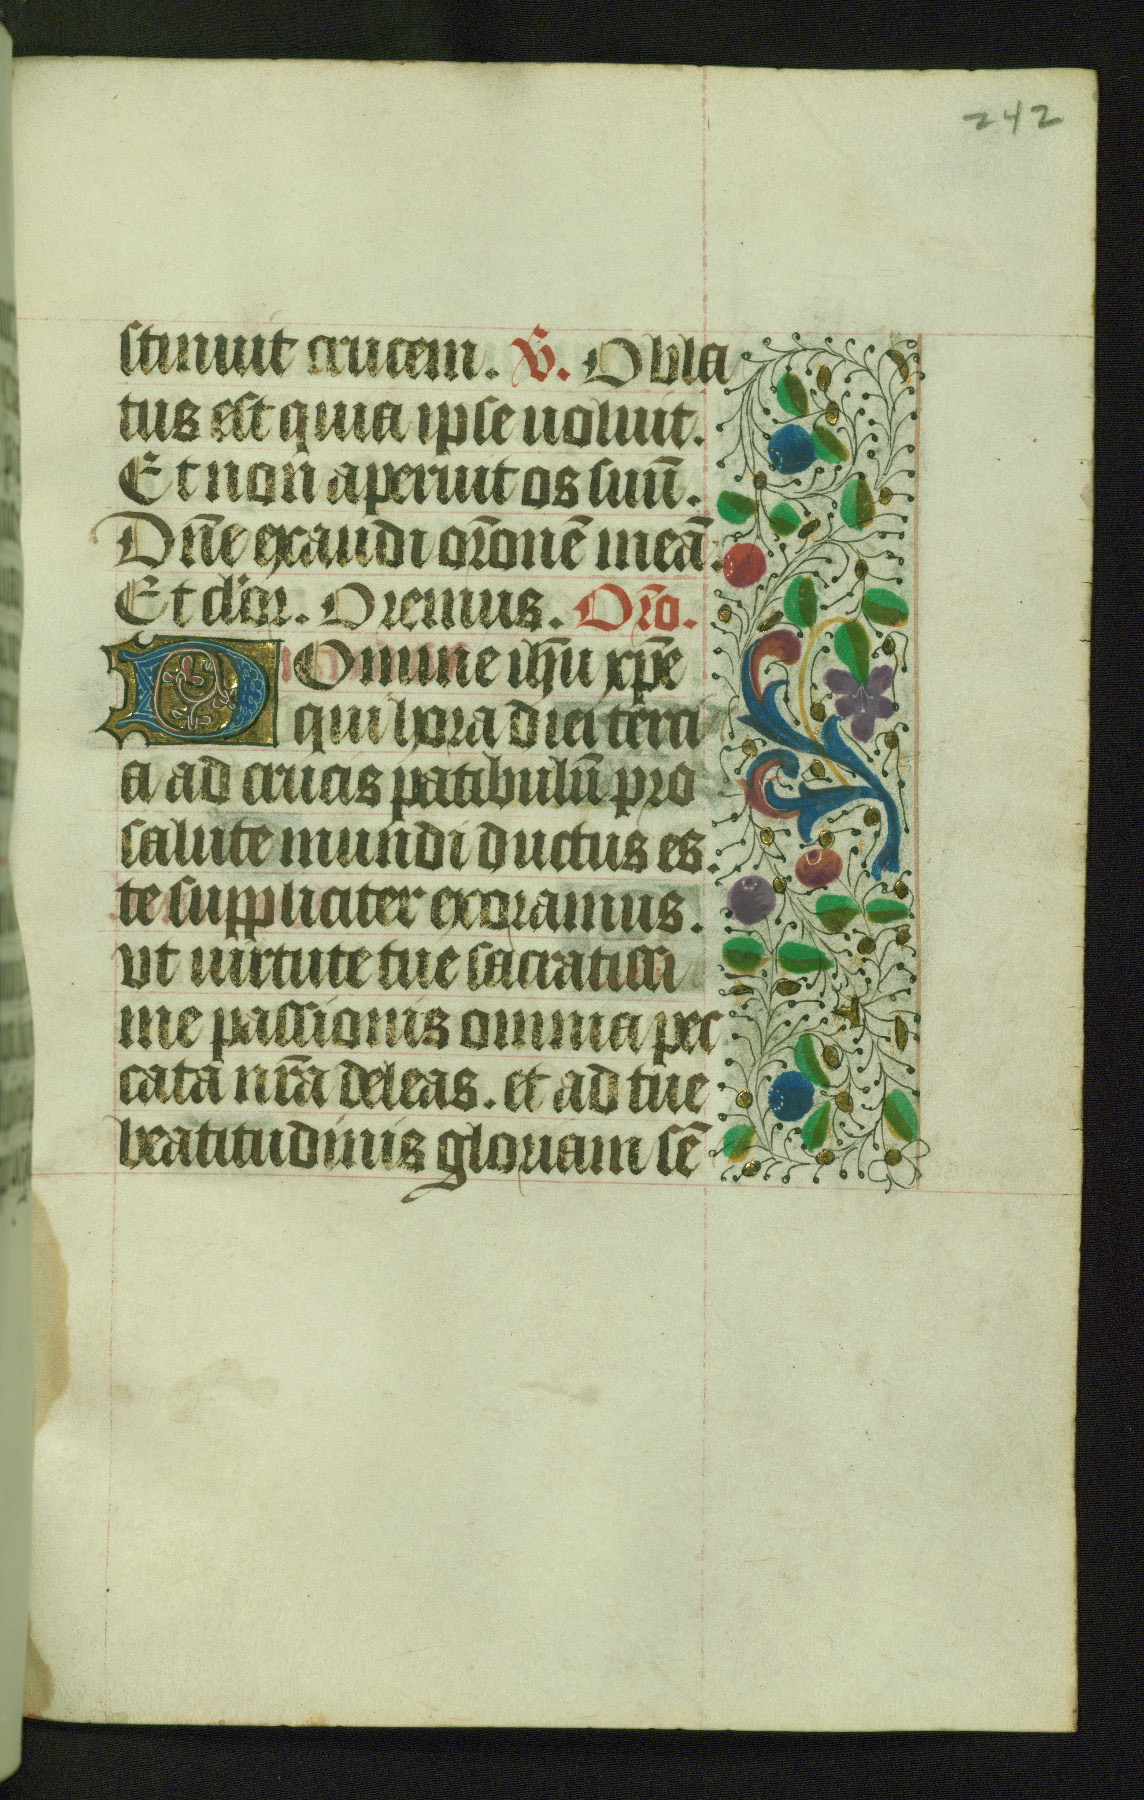 242
stinuit crucem. ℣. Obla
tus est quia ipse uoluit.
Et non aperuit os suū.
Dn̄e exaudi or̄onē meā.
Et cl'or. Oremus. Or̄o.
DOmine ih̄u xp̄e
qui hora diei terci
a ad crucis patibulū pro
salute mundi ductus es.
te suppliciter exoramus.
vt uirtute tue sacratissi
me passionis omnia pec
cata nr̄a deleas. et ad tue
beatitudinis gloriam sē